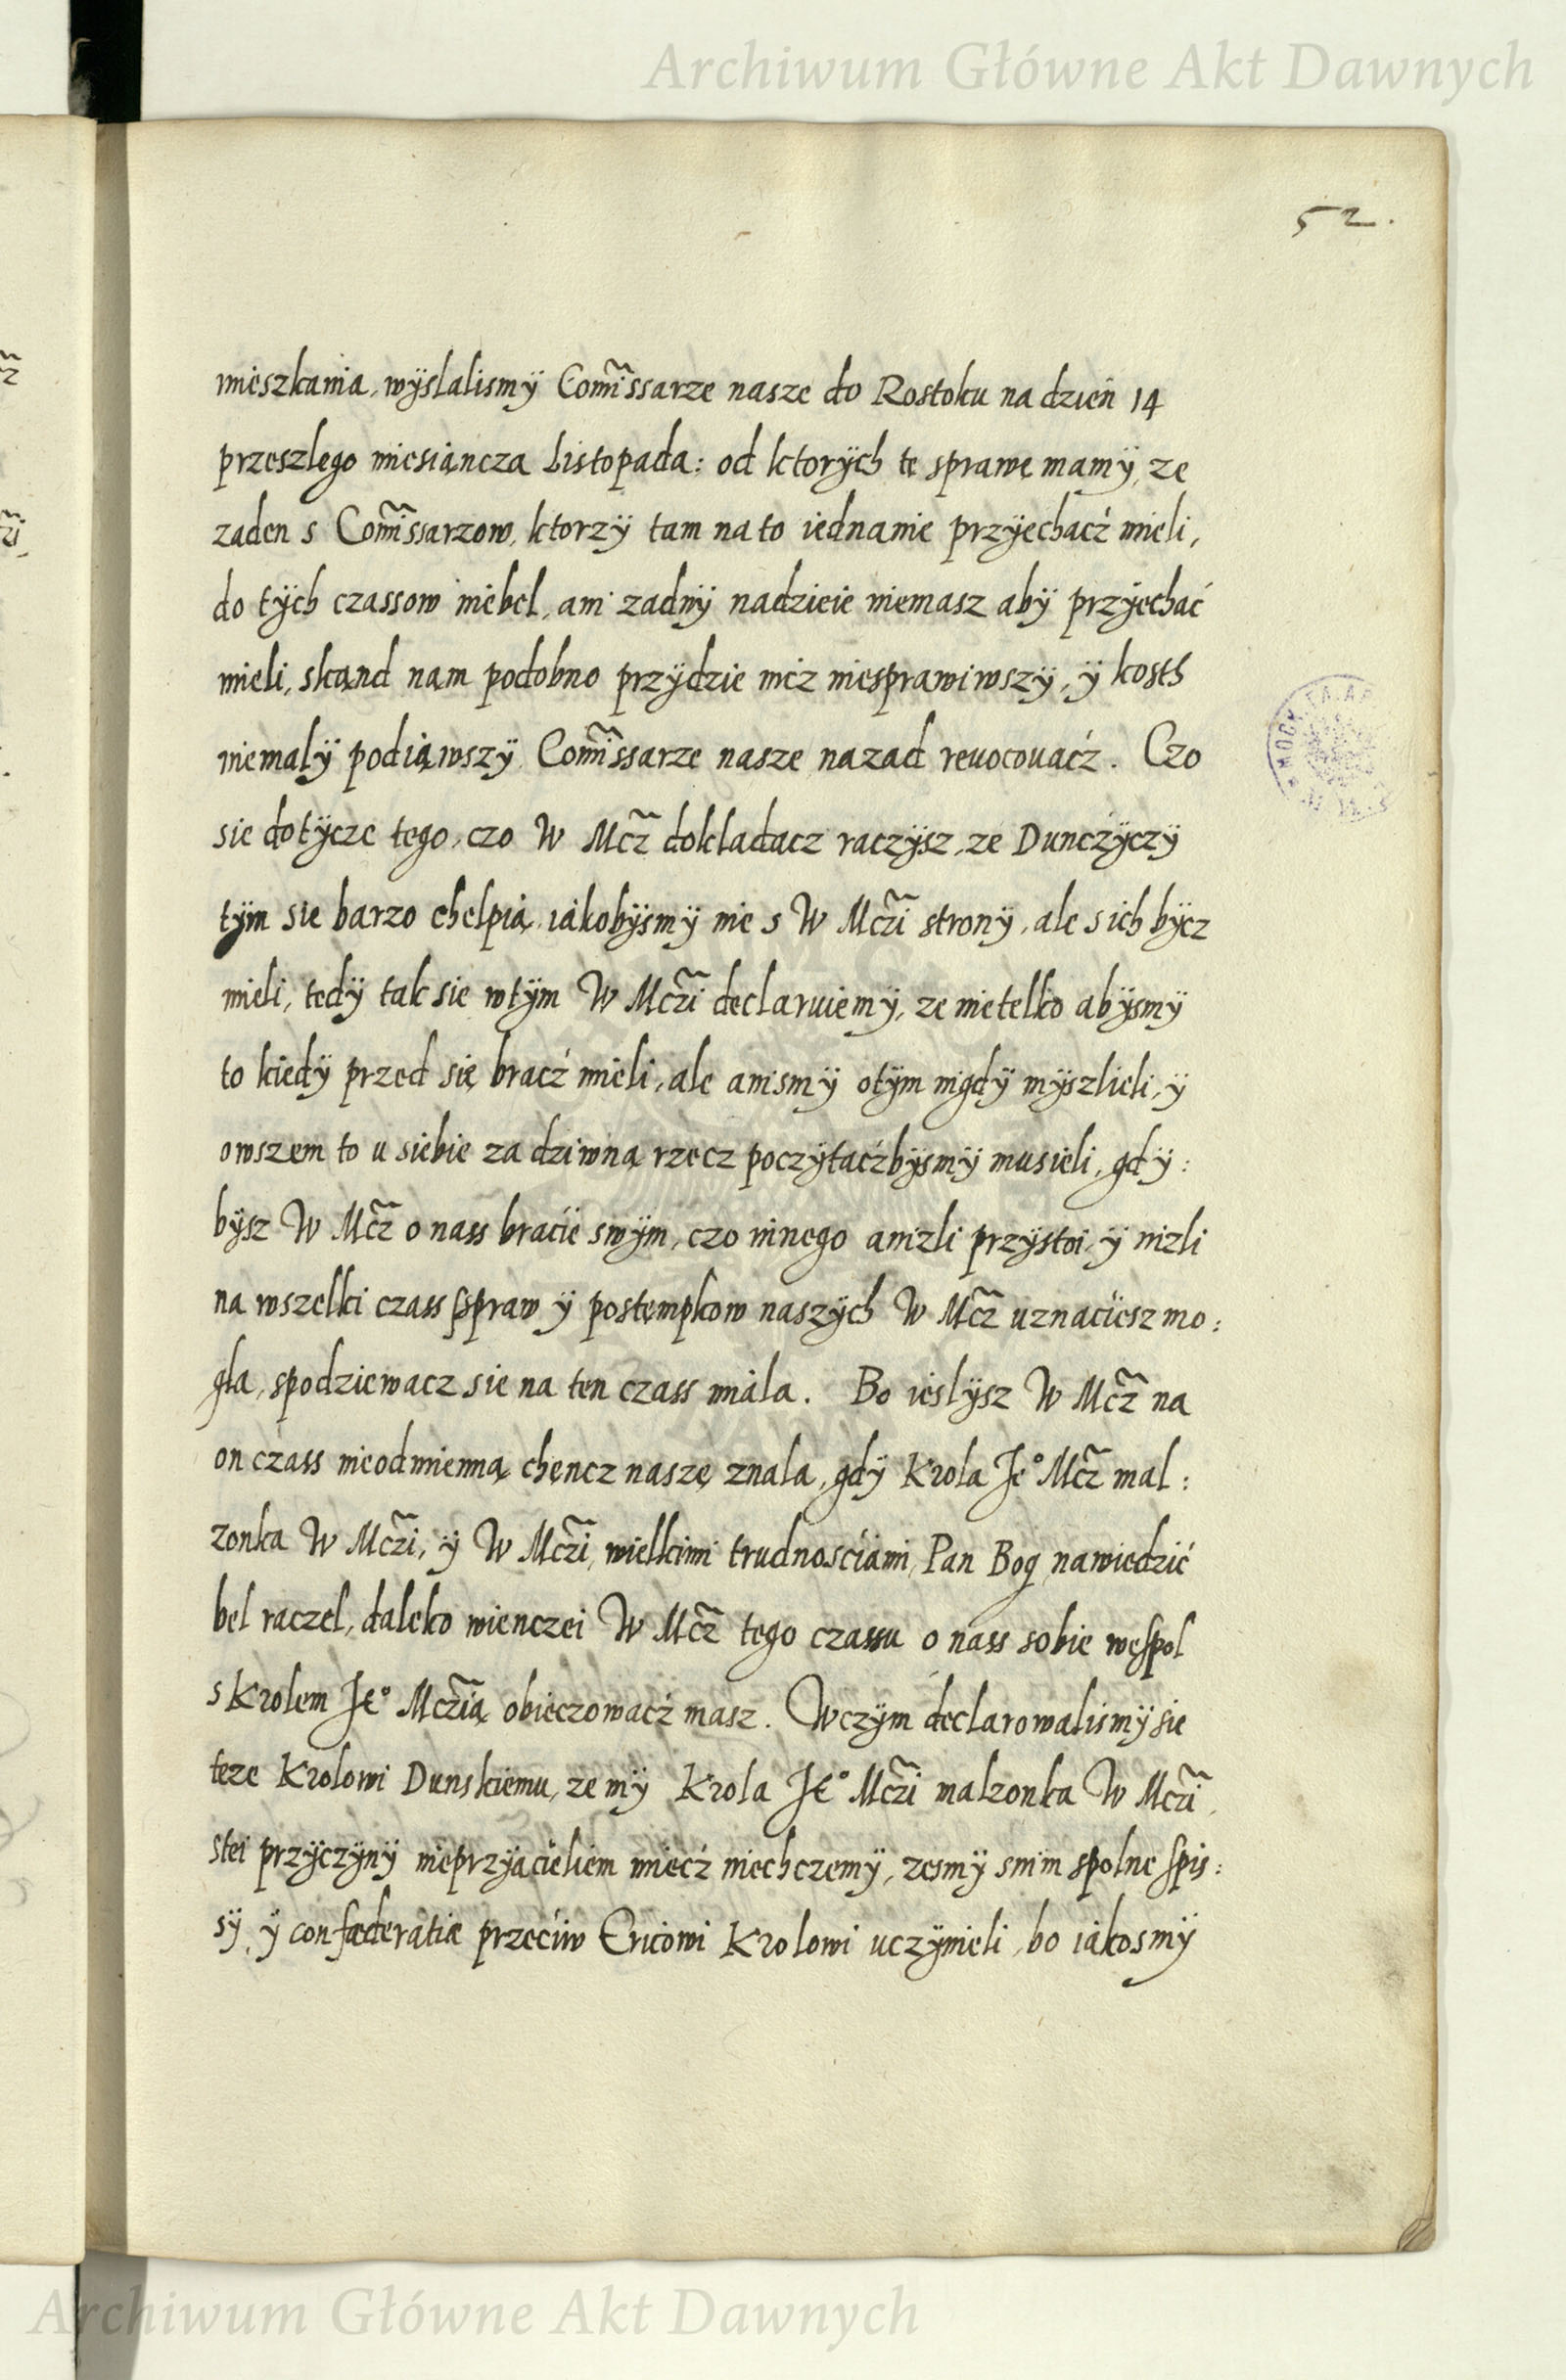 Archiwum Główne Akt Dawnych
52.
mieszkania, wÿslalismÿ Com̃issarze nasze do Rostoku na dzień 14
przeszlego miesiąncza Listopada: od ktorÿch tę sprawę mamÿ, ze
zaden s Com̃issarzow, ktorzÿ tam na to iednanie przÿechacź mieli,
do tÿch czassow niebel, ani zadnÿ nadzieie niemasz abÿ przÿechać
mieli, skąnd nam podobno przÿdzie nicz niesprawiwszÿ, ÿ kosth
niemalÿ podiąwszÿ Com̃issarze nasze nazad reuocouacź. Czo
sie dotÿcze tego, czo W Mcz̃ dokladacz raczÿsz, ze Dunczÿczÿ
tÿm sie barzo chelpią, iakobÿsmÿ nie s W Mcz̃i stronÿ, ale s ich bÿcz
mieli, tedÿ tak sie wtÿm W Mcz̃i declaruiemÿ, ze nietelko abÿsmÿ
to kiedÿ przed się bracź mieli, ale anismÿ otÿm nigdÿ mÿszlieli, ÿ
owszem to u siebie za dziwną rzecz poczÿtacźbÿsmÿ musieli, gdÿ:
bÿsz W Mcz̃ o nass bracie swÿm, czo innego anizli przÿstoi, ÿ nizli
na wszelki czass sspraw ÿ postęmpkow naszÿch W Mcz̃ uznaciesz mo:
gla, spodziewacz sie na ten czass miala. Bo ieslÿsz W Mcz̃ na
on czass nieodmienną chęncz naszę znala, gdÿ Krola Je° Mcz̃ mal:
zonka W Mcz̃i, ÿ W Mcz̃i, wielkimi trudnosciami, Pan Bog nawiedzić
bel raczel, daleko wienczei W Mcz̃ tego czassu o nass sobie węspol
s Krolem Je° Mcz̃ią obieczowacź masz. Wczÿm declarowalismÿ sie
teze Krolowi Dunskiemu, ze mÿ Krola Je° Mcz̃i malzonka W Mcz̃i,
stei przÿczÿnÿ nieprzÿacieliem miecź niechczemÿ, zesmÿ snim spolne spis:
sÿ, ÿ confæderatiæ przeciw Ericowi Krolowi uczÿnieli, bo iakosmÿ
Archiwum Główne Akt Dawnych